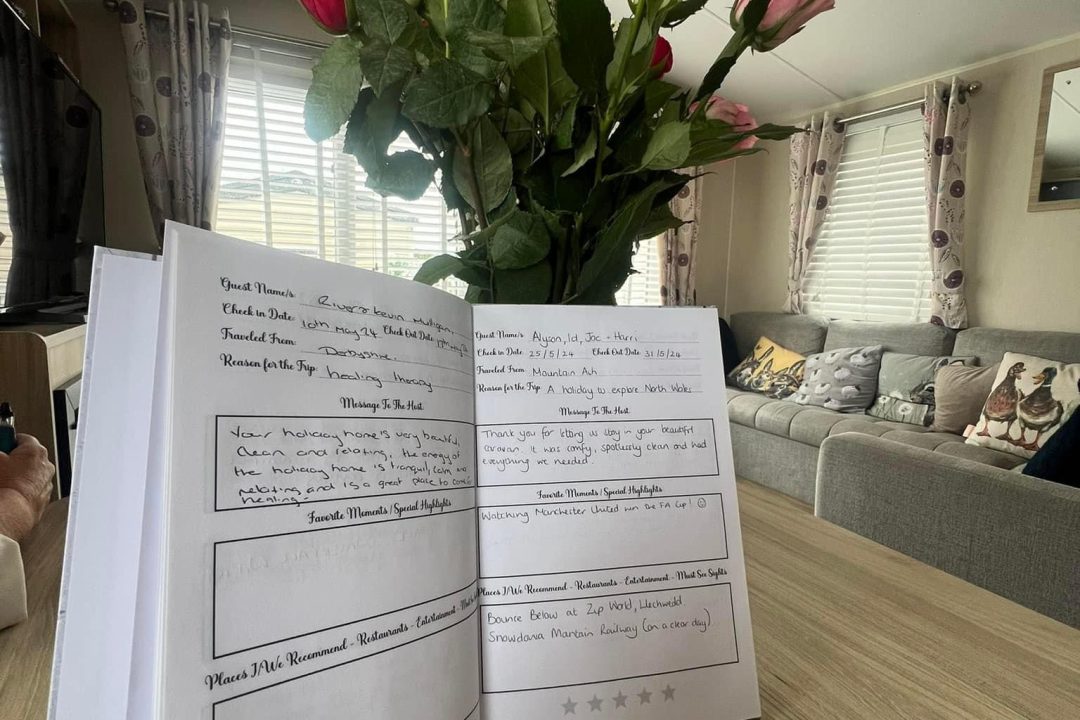 Guest Name/s
River & Kevin Mulligan.
Check in Date: 10th May 24 Check Out Date 17th May 24
Traveled From: Derbyshire.
Reason for the Trip: healing therapy
Message To The Host
Your holiday home is very beautiful,
Clean and relating, the energy of
the holiday home is tranquil, calm and
relating and is a great place to
healing.
Favorite Moments / Special Highlights
Places I/We Recommend - Restaurants - Entertainment -
Guest Name/s Alyson, Id, Joc + Harri
Check in Date 25/5/24 Check Out Date 31/5/24
Traveled From Mountain Ash
Reason for the Trip A holiday to explore North Wales
Message To The Host
Thank you for letting us stay in your beautiful
caravan. It was comfy, spotlessly clean and had
everything we needed.
Favorite Moments / Special Highlights
Watching Manchester United win the FA Cup! ☺
Places I/We Recommend - Restaurants - Entertainment - Must See Sights
Bounce Below at Zip World, Llechwedd
Snowdonia Mountain Railway (on a clear day)